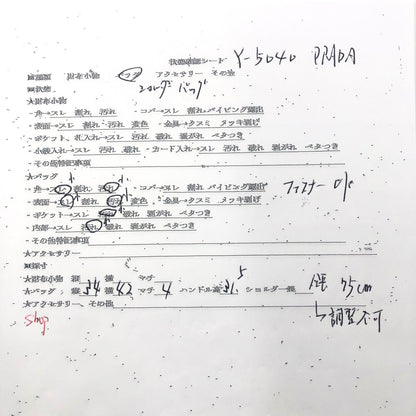 状態確認シート Y-5040 PRADA
■種類 財布小物 バッグ アクセサリー その他
■状態 ショルダーバッグ
★財布小物
・角→スレ 割れ 汚れ ・コバ→スレ 割れ パイピング露出
・表面→スレ 割れ 汚れ 変色 ・金具→クスミ メッキ剥げ
・ポケット、札入れ→スレ 汚れ 破れ 剥がれ ベタつき
・小銭入れ→スレ 汚れ 破れ ・カード入→スレ 汚れ 破れ 剥がれ ベタつき
・その他特記事項
★バッグ
・角→スレ 割れ 汚れ ・コバ→スレ 割れ パイピング露出 ファスナー
・表面→スレ 割れ 汚れ 変色 ・金具→クスミ メッキ剥げ
・ポケット→スレ 汚れ 破れ 剥がれ ベタつき
・内部→スレ 汚れ 破れ 剥がれ ベタつき
・その他特記事項
★アクセサリー
■採寸
★財布小物 縦 横 マチ
★バッグ 縦 34 横 42 マチ 4 ハンドル高 31.5 ショルダー 75cm
★アクセサリー、その他 ↳調整不可
shop